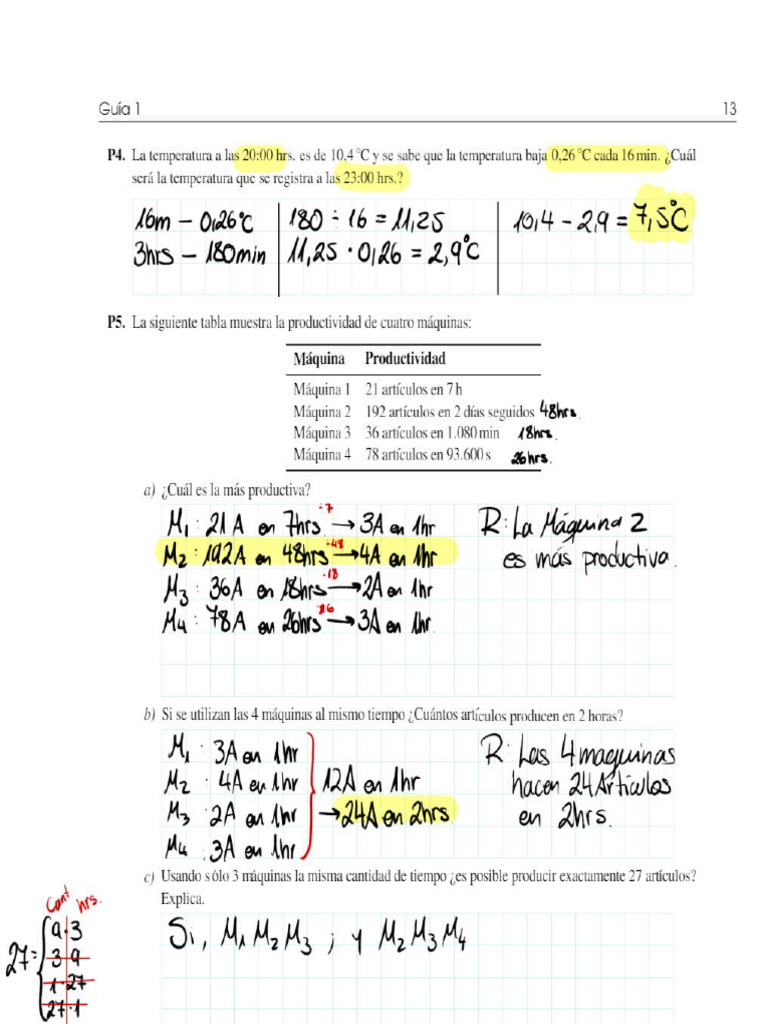 Guía 1 13
P4. La temperatura a las 20:00 hrs. es de 10,4 °C y se sabe que la temperatura baja 0,26 °C cada 16 min. ¿Cuál
será la temperatura que se registra a las 23:00 hrs.?
16m – 0,26°C
3hrs – 180min
180 ÷ 16 = 11,25
11,25 · 0,26 = 2,9°C
10,4 – 2,9 = 7,5°C
P5. La siguiente tabla muestra la productividad de cuatro máquinas:
Máquina Productividad
Máquina 1 21 artículos en 7 h
Máquina 2 192 artículos en 2 días seguidos 48hrs.
Máquina 3 36 artículos en 1.080 min 18hrs.
Máquina 4 78 artículos en 93.600 s 26hrs.
a) ¿Cuál es la más productiva?
M1 : 21A en 7hrs ÷7 → 3A en 1hr
M2 : 192A en 48hrs ÷48 → 4A en 1hr
M3 : 36A en 18hrs ÷18 → 2A en 1hr
M4 : 78A en 26hrs ÷26 → 3A en 1hr.
R: La Máquina 2
es más productiva.
b) Si se utilizan las 4 máquinas al mismo tiempo ¿Cuántos artículos producen en 2 horas?
M1 : 3A en 1hr
M2 : 4A en 1hr
M3 : 2A en 1hr
M4 : 3A en 1hr
12A en 1hr
→ 24A en 2hrs
R: Las 4 maquinas
hacen 24 Artículos
en 2hrs.
c) Usando sólo 3 máquinas la misma cantidad de tiempo ¿es posible producir exactamente 27 artículos?
Explica.
Cant hrs.
27 =
9 · 3
3 · 9
1 · 27
27 · 1
Si, M1 M2 M3 ; y M2 M3 M4